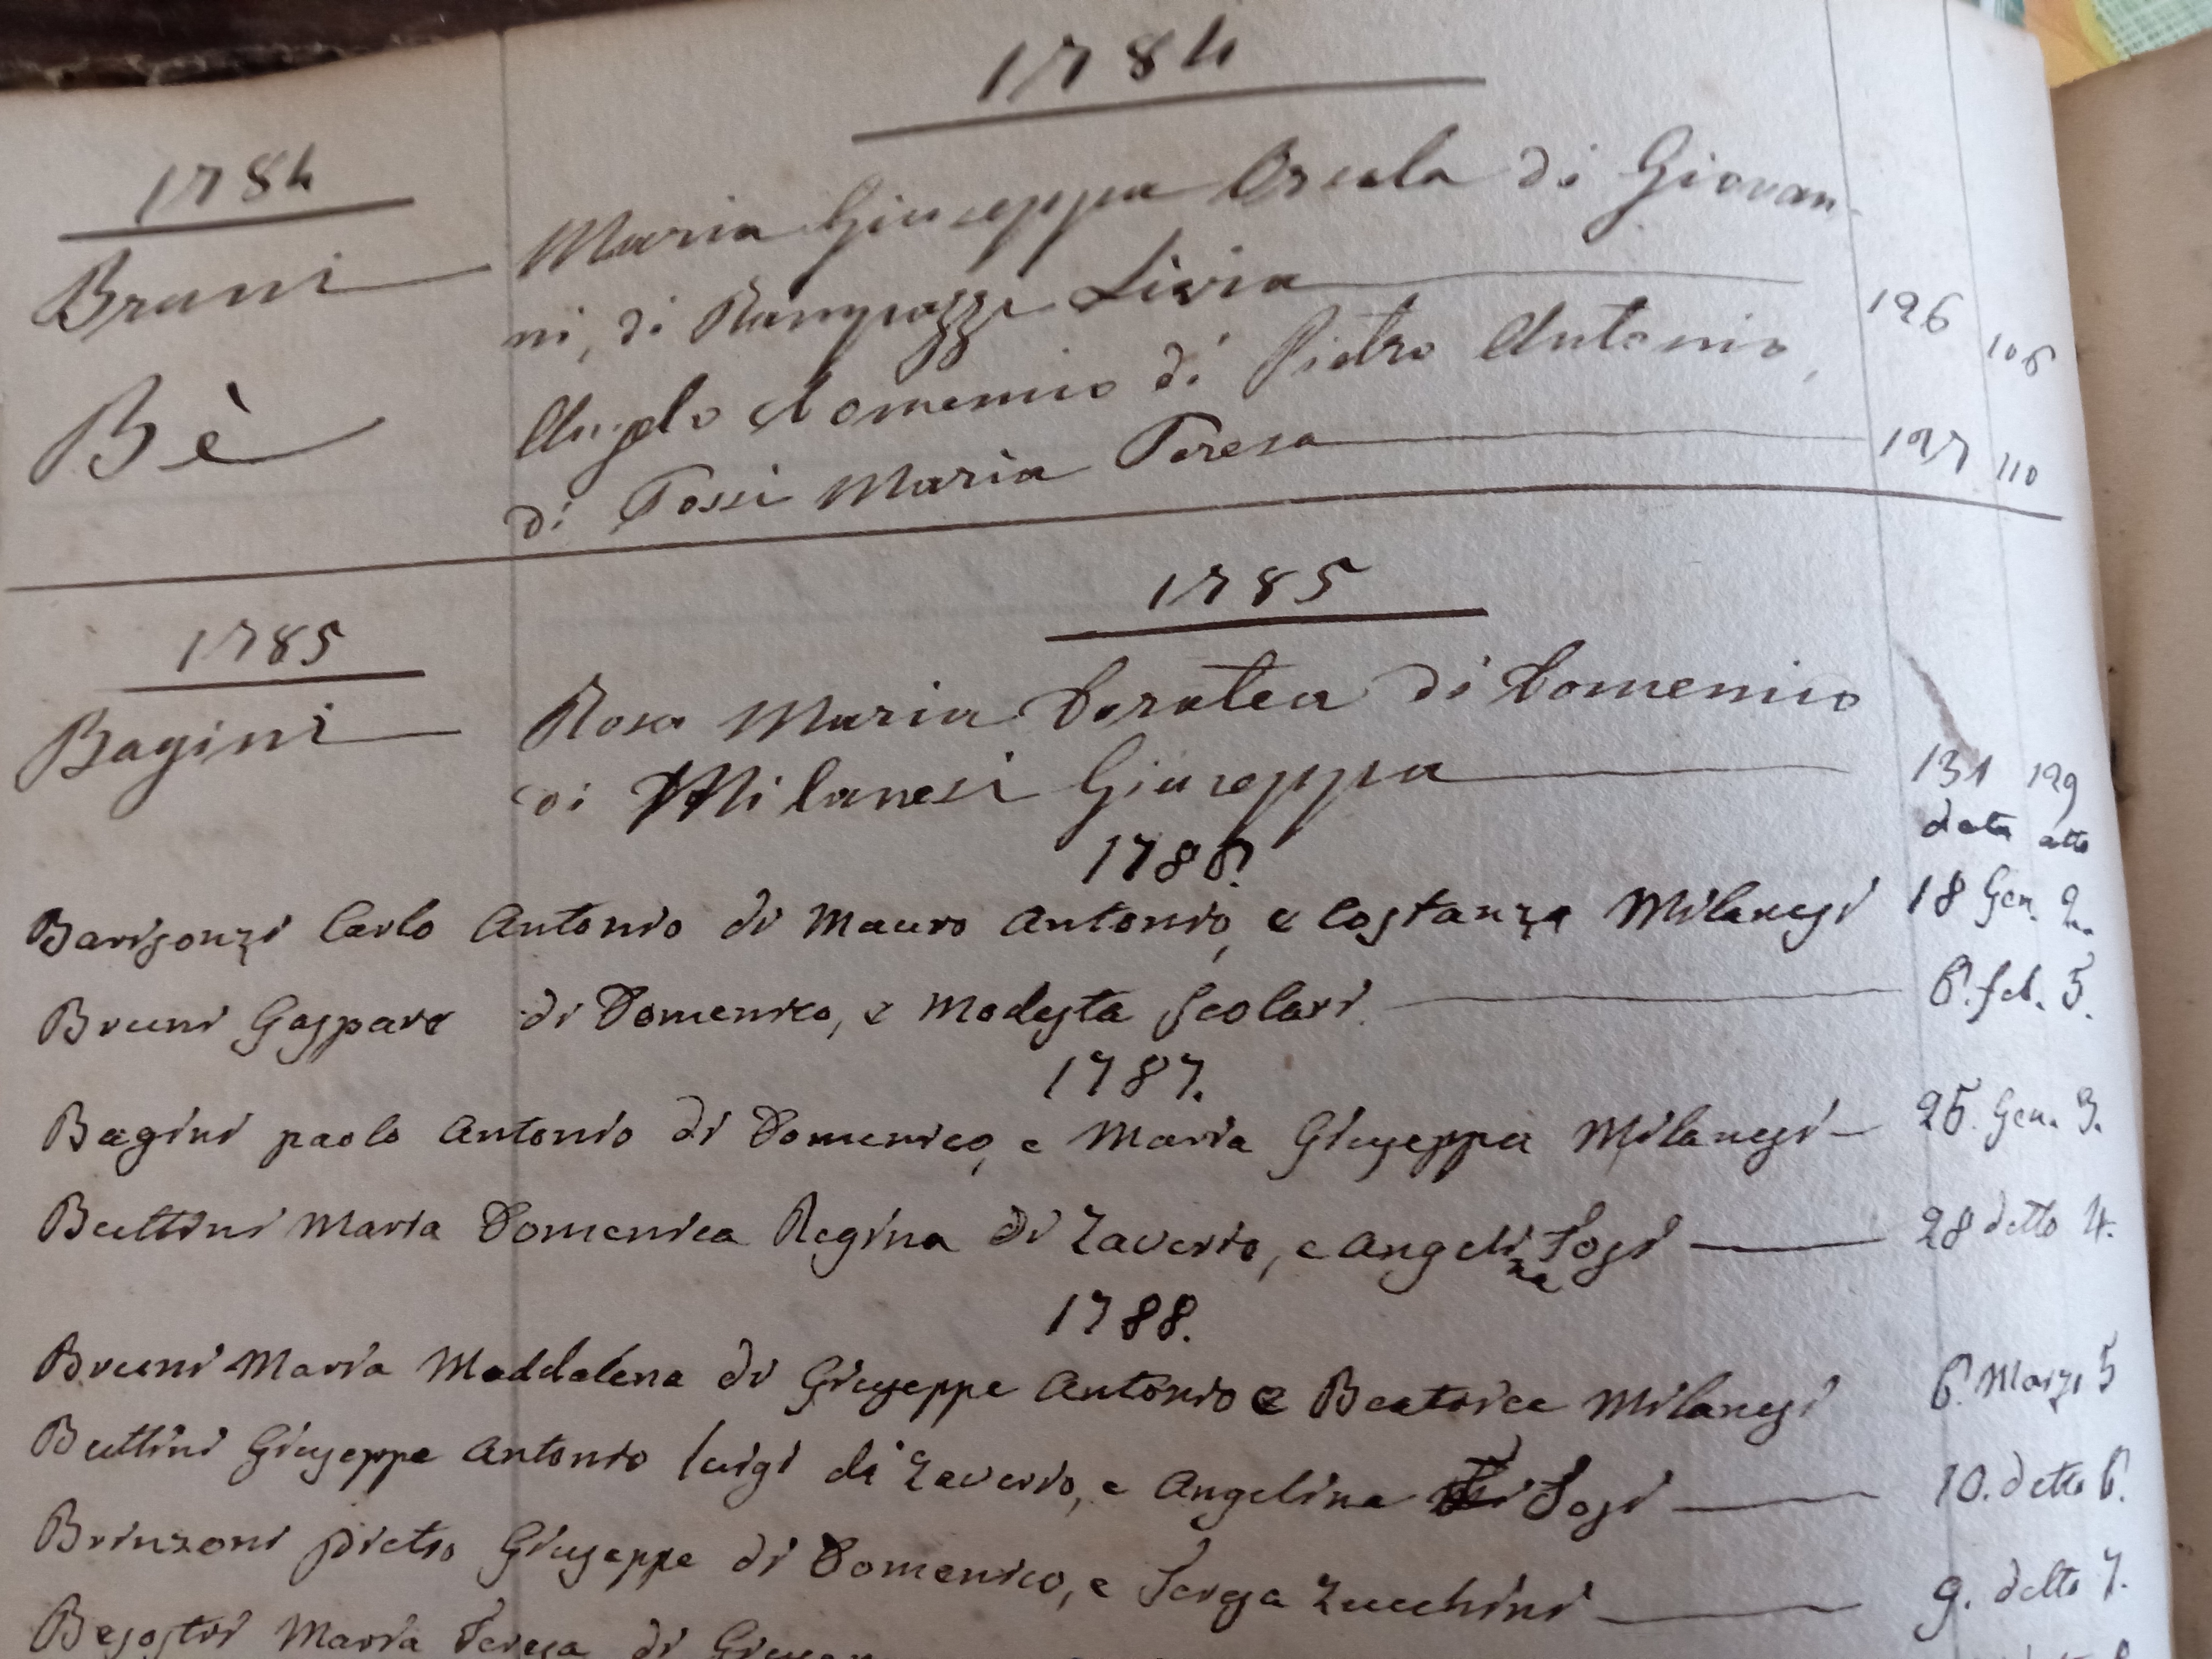 1784
1784
Bruni Maria Giuseppa Orsola di Giovan-
ni, di Rampazzi Livia 126 106
Bè Angelo Domenico di Pietro Antonio,
di Tossi Maria Teresa 127 110
1785
1785
Bagini Rosa Maria Dorotea di Domenico
di Milanesi Giuseppa 131 129
data atto
1786.
Barisonzi Carlo Antonio di Mauro Antonio, e Costanza Milanesi 18 Gen. 2.
Bruni Gaspare di Domenico, e Modesta Scolari. 6. feb. 5.
1787.
Bagini paolo Antonio di Domenico, e Maria Giuseppa Milanesi 25. Gen. 3.
Buttini Maria Domenica Regina di Zaverio, e Angelina Tosi 28 detto 4.
1788.
Bruni Maria Maddalena di Giuseppe Antonio e Beatrice Milanesi 6. Marzo 5
Buttini Giuseppe Antonio luigi di Zaverio, e Angelina Tosi 10. detto 6.
Brinzoni pietro Giuseppe di Domenico, e Teresa Zucchini 9. detto 7.
Besostri Maria Teresa di